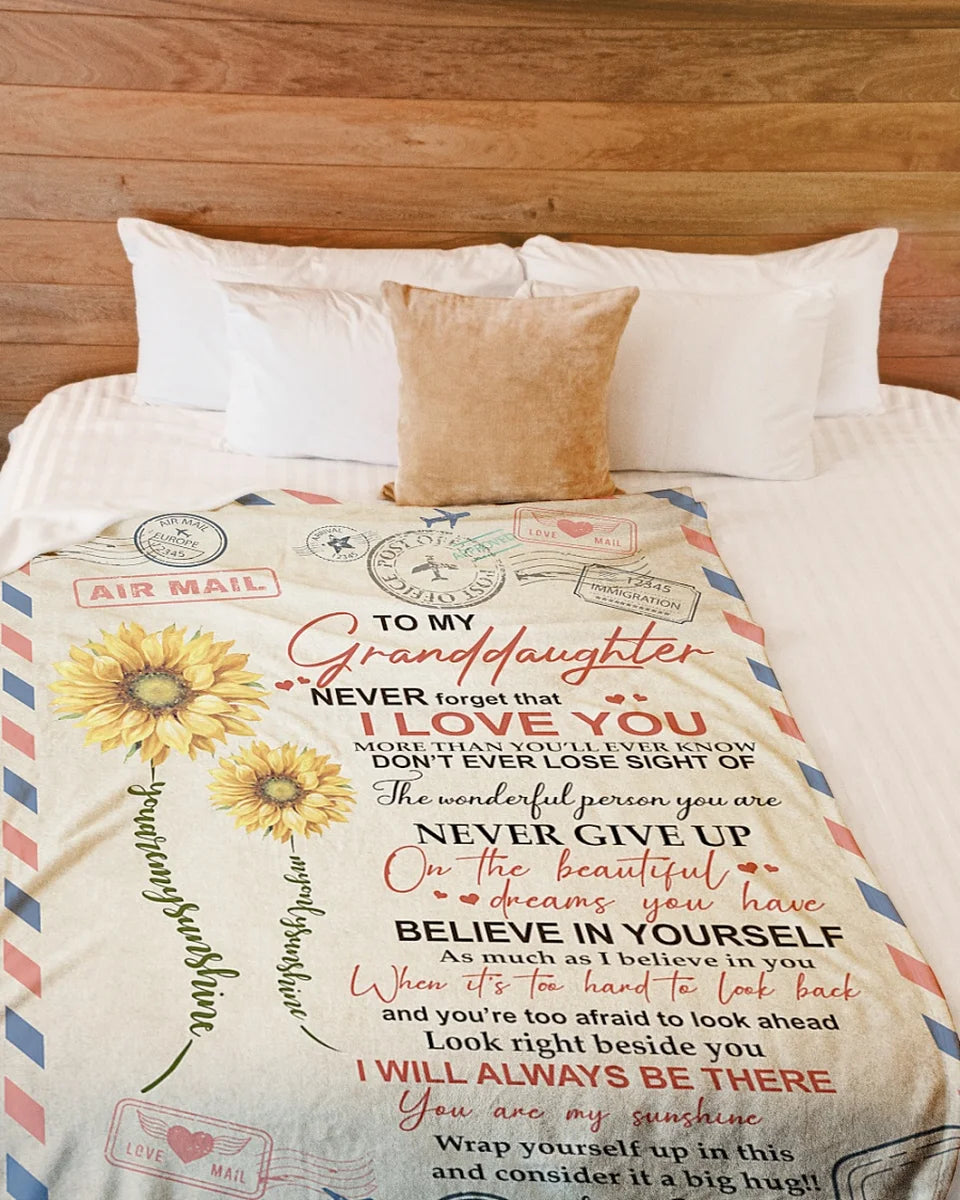 AIR MAIL
EUROPE
12345
ARRIVAL
12345
POST OFFICE
POST OFFICE
APPROVED
LOVE MAIL
12345
IMMIGRATION
AIR MAIL
TO MY
Granddaughter
NEVER forget that
I LOVE YOU
MORE THAN YOU'LL EVER KNOW
DON'T EVER LOSE SIGHT OF
The wonderful person you are
NEVER GIVE UP
On the beautiful
dreams you have
BELIEVE IN YOURSELF
As much as I believe in you
When it's too hard to look back
and you're too afraid to look ahead
Look right beside you
I WILL ALWAYS BE THERE
You are my sunshine
Wrap yourself up in this
and consider it a big hug!!
youaremysunshine
myonlysunshine
LOVE MAIL